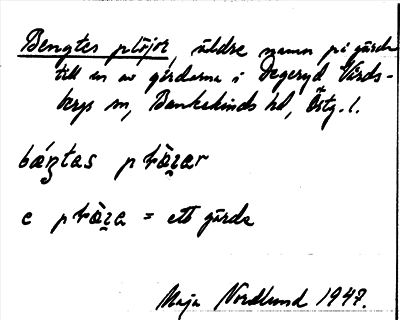 Bengtes plöjor, äldre namn på gärde
till en av gårdarna i Degeryd Vårds-
bergs sn, Bankekinds hd, Östg. l.
bæ̀ŋtas pɫö̀jar
e pɫö̀ja = ett gärde
Maja Nordlund 1947.